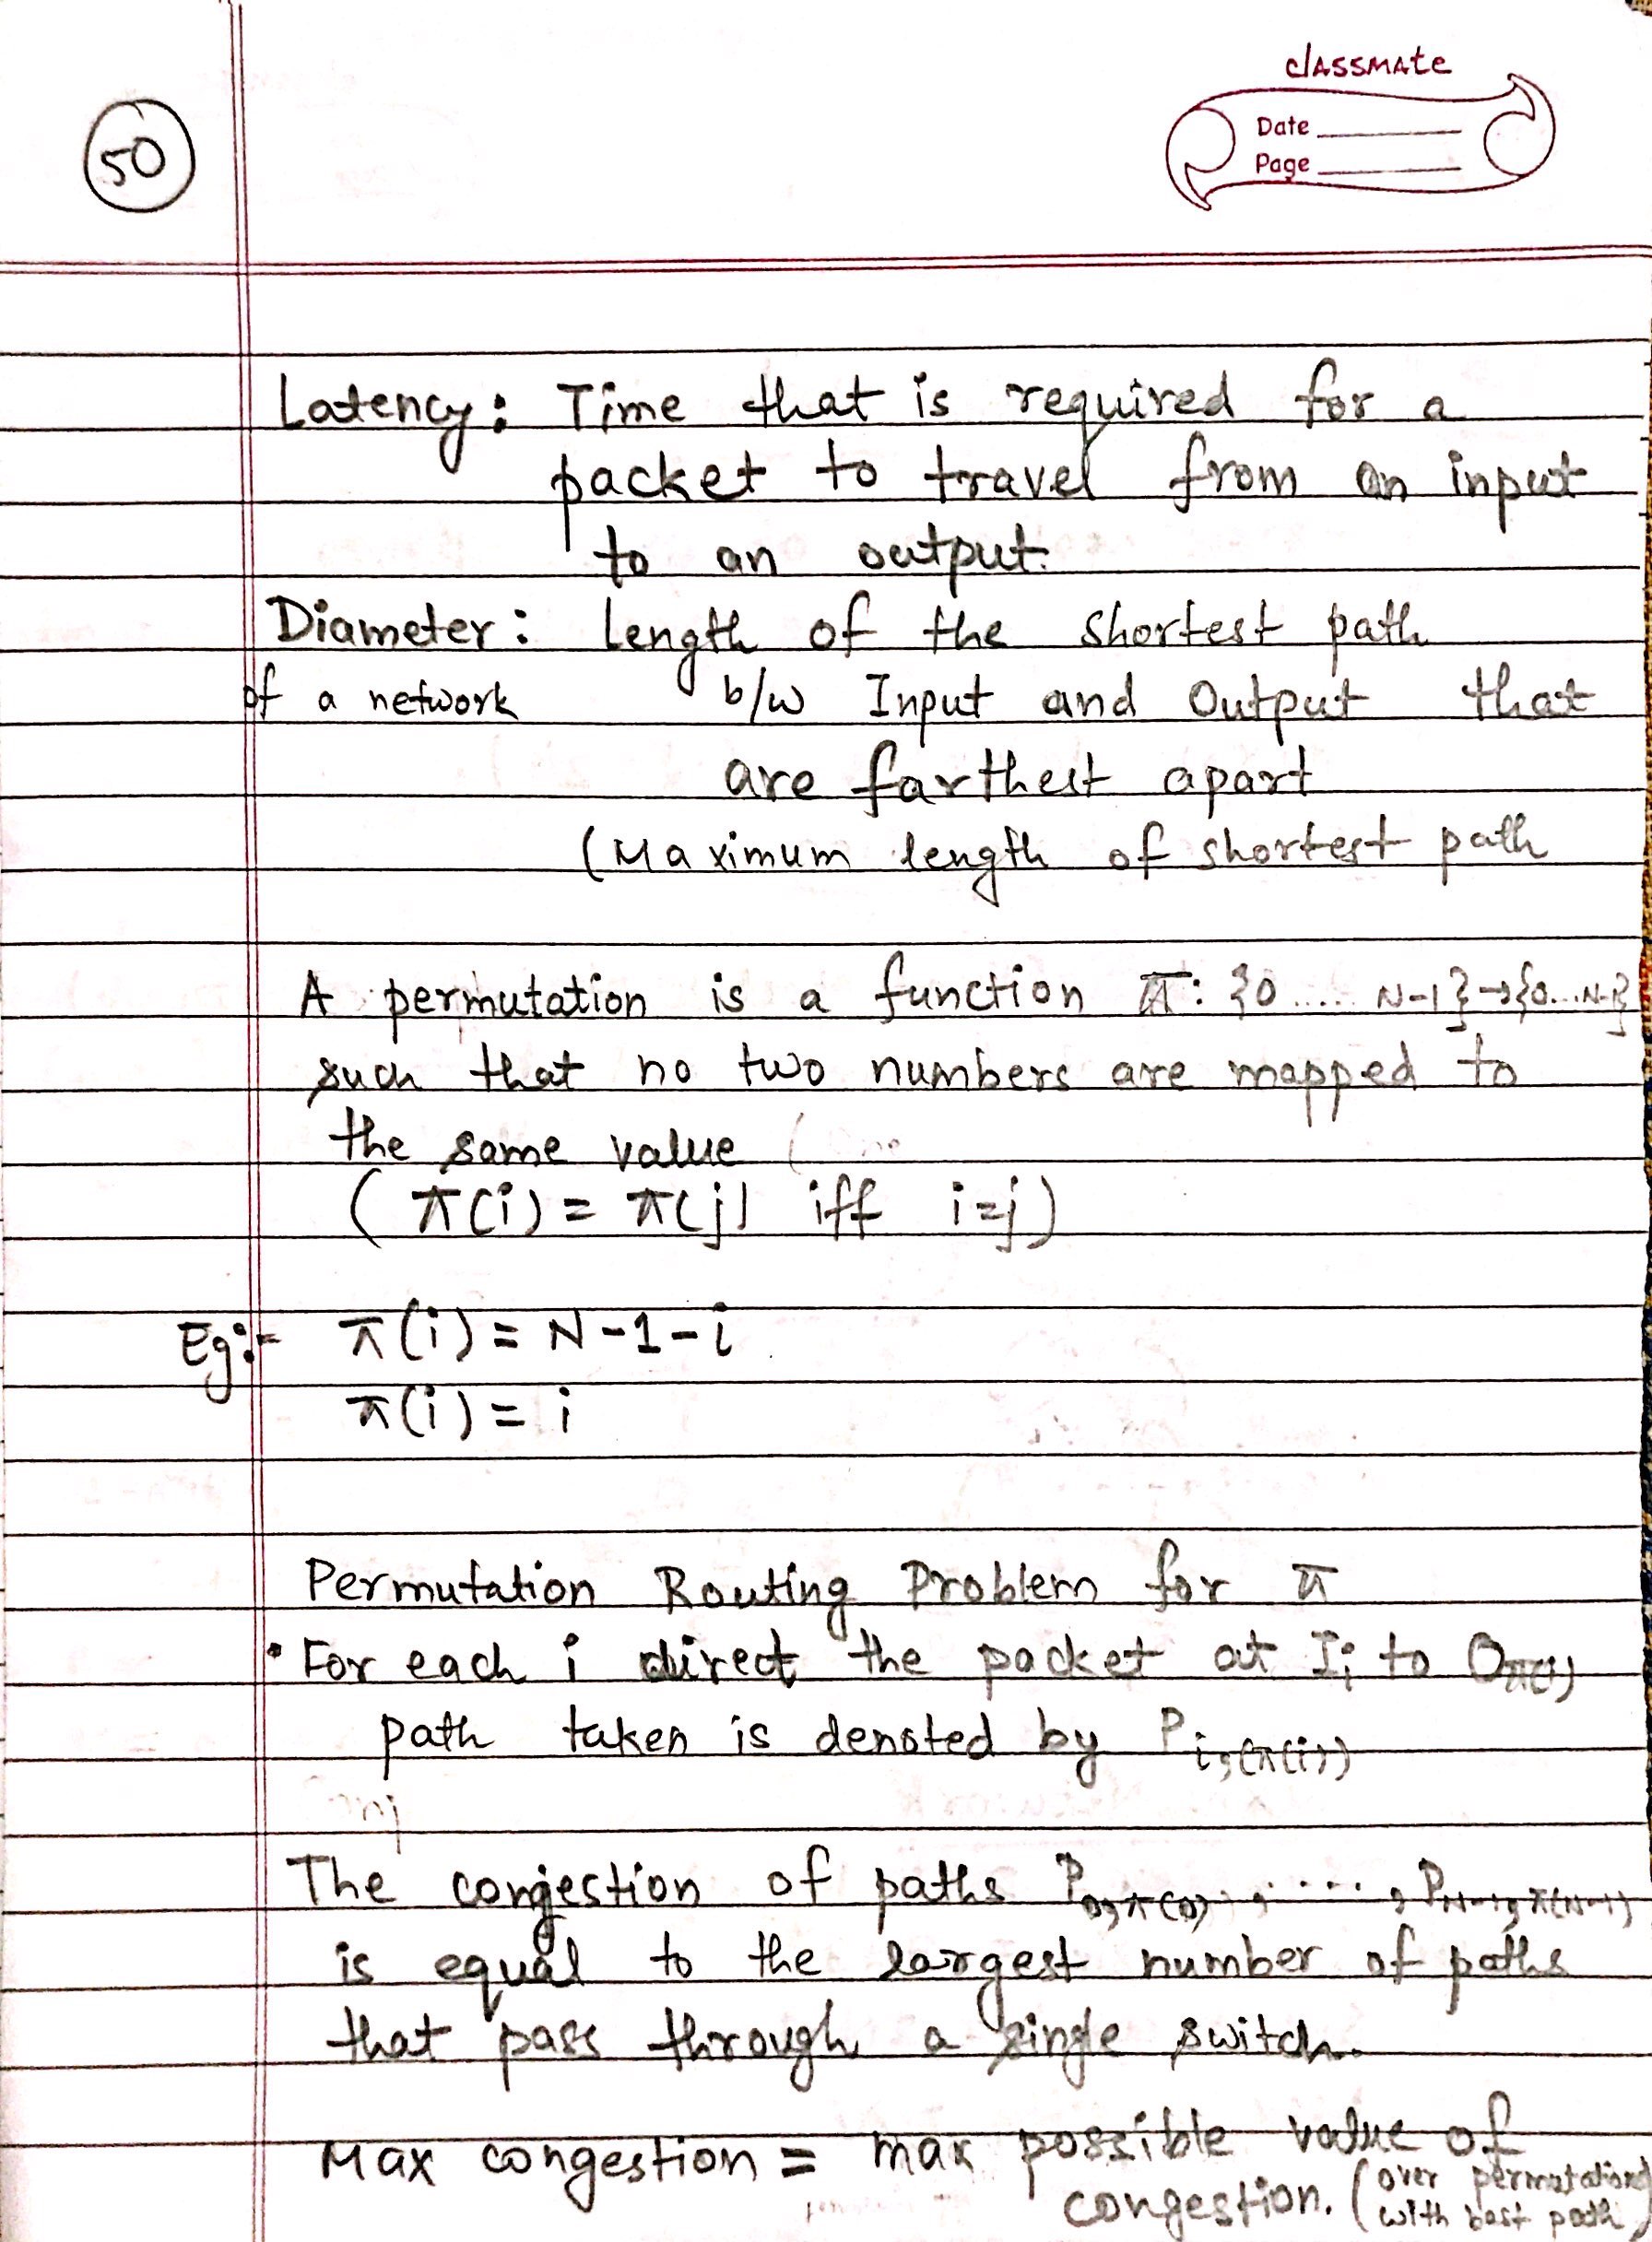 classmate
Date
Page
50
Latency: Time that is required for a
packet to travel from an input
to an output.
Diameter: Length of the shortest path
of a network b/w Input and Output that
are farthest apart
(Maximum length of shortest path
A permutation is a function π: {0 ..... N-1} → {0...N-1}
such that no two numbers are mapped to
the same value (
( π(i) = π(j) iff i=j)
Eg:- π(i) = N-1-i
π(i) = i
Permutation Routing Problem for π
• For each i direct the packet at I_i to O_π(i)
path taken is denoted by P_i,(π(i))
The congestion of paths P_0,π(0), ...., P_N-1,π(N-1)
is equal to the largest number of paths
that pass through a single switch.
Max congestion = max possible value of
congestion. (over permutations
with best path)